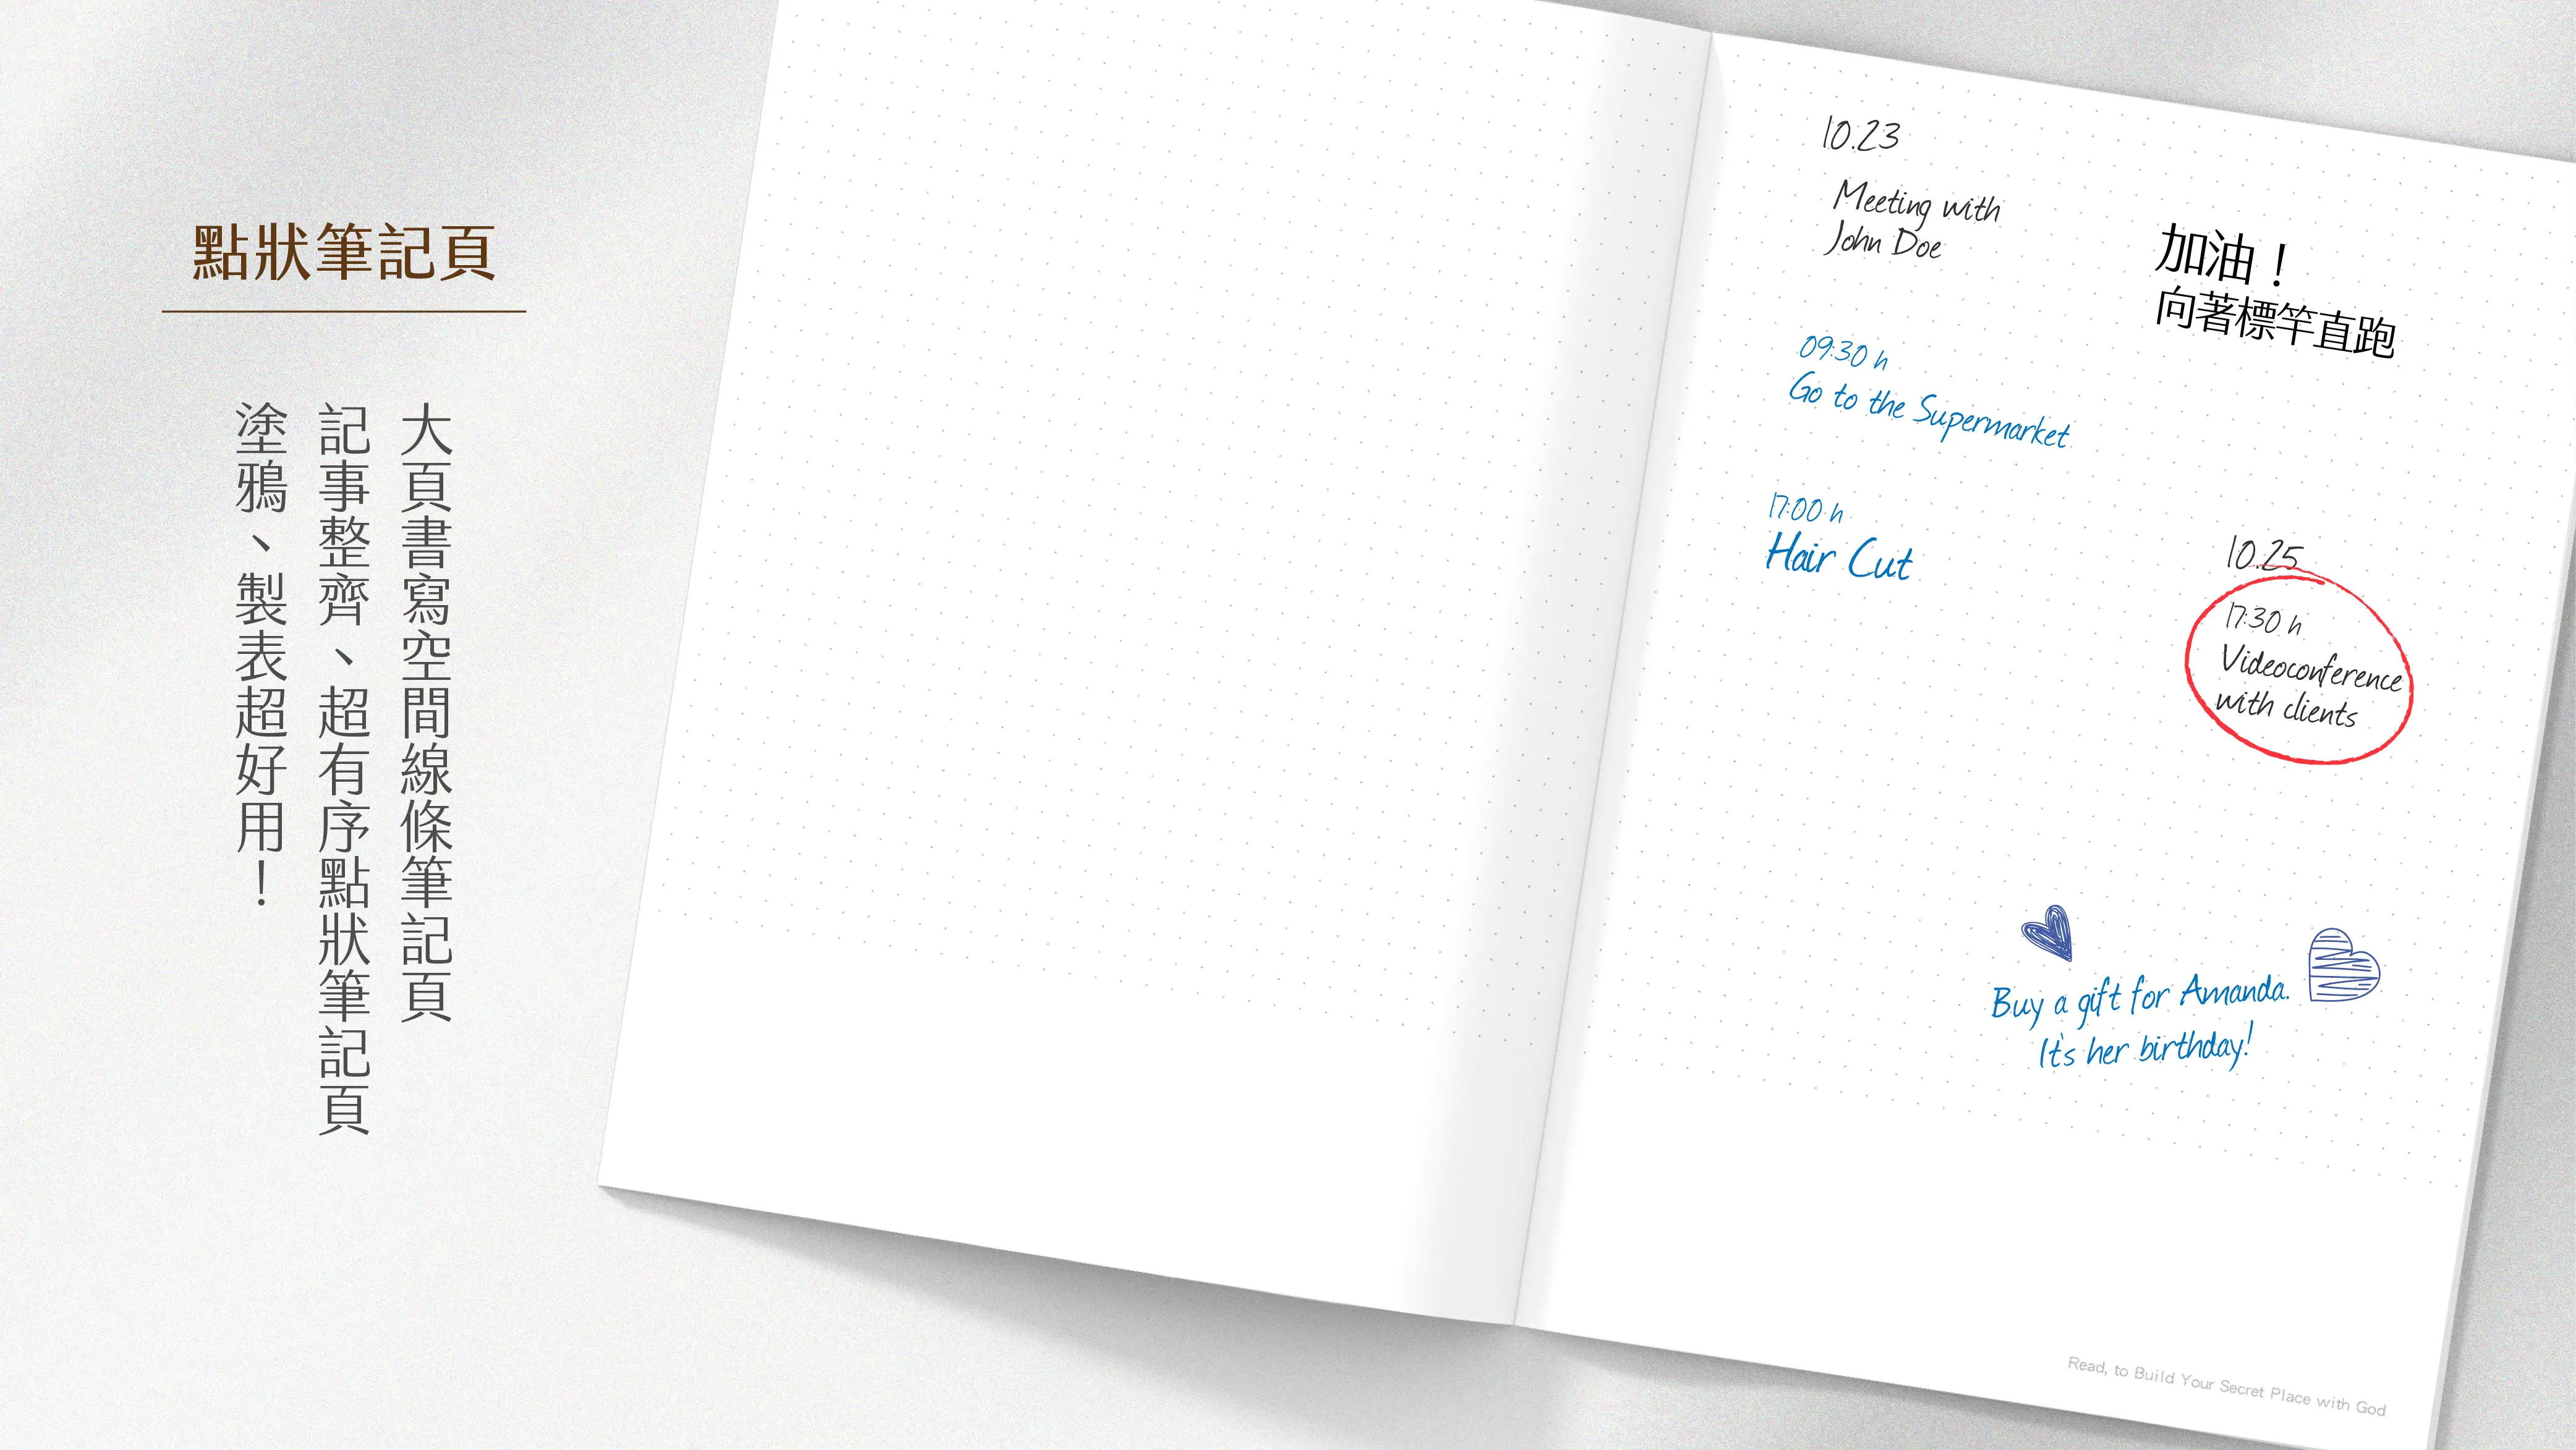 點狀筆記頁
大頁書寫空間線條筆記頁
記事整齊、超有序點狀筆記頁
塗鴉、製表超好用！
10.23
Meeting with
John Doe
加油！
向著標竿直跑
09:30 h
Go to the Supermarket
17:00 h
Hair Cut
10.25
17:30 h
Videoconference
with clients
Buy a gift for Amanda.
It's her birthday!
Read, to Build Your Secret Place with God